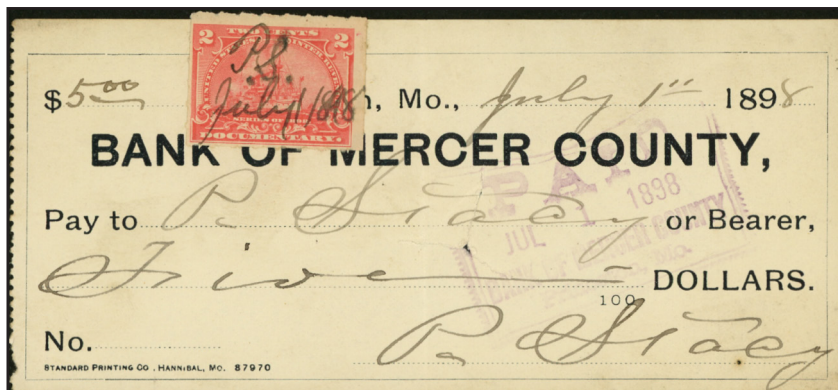 2 TWO CENTS 2
P.S.
July 1 1898
SERIES OF
DOCUMENTARY.
$5.00 n, Mo., July 1" 1898
BANK OF MERCER COUNTY,
PAID
JUL 1 1898
BANK OF MERCER COUNTY
MO.
Pay to P. Stacy or Bearer,
Five DOLLARS.
100
No. P. Stacy
STANDARD PRINTING CO., HANNIBAL, MO. 87970